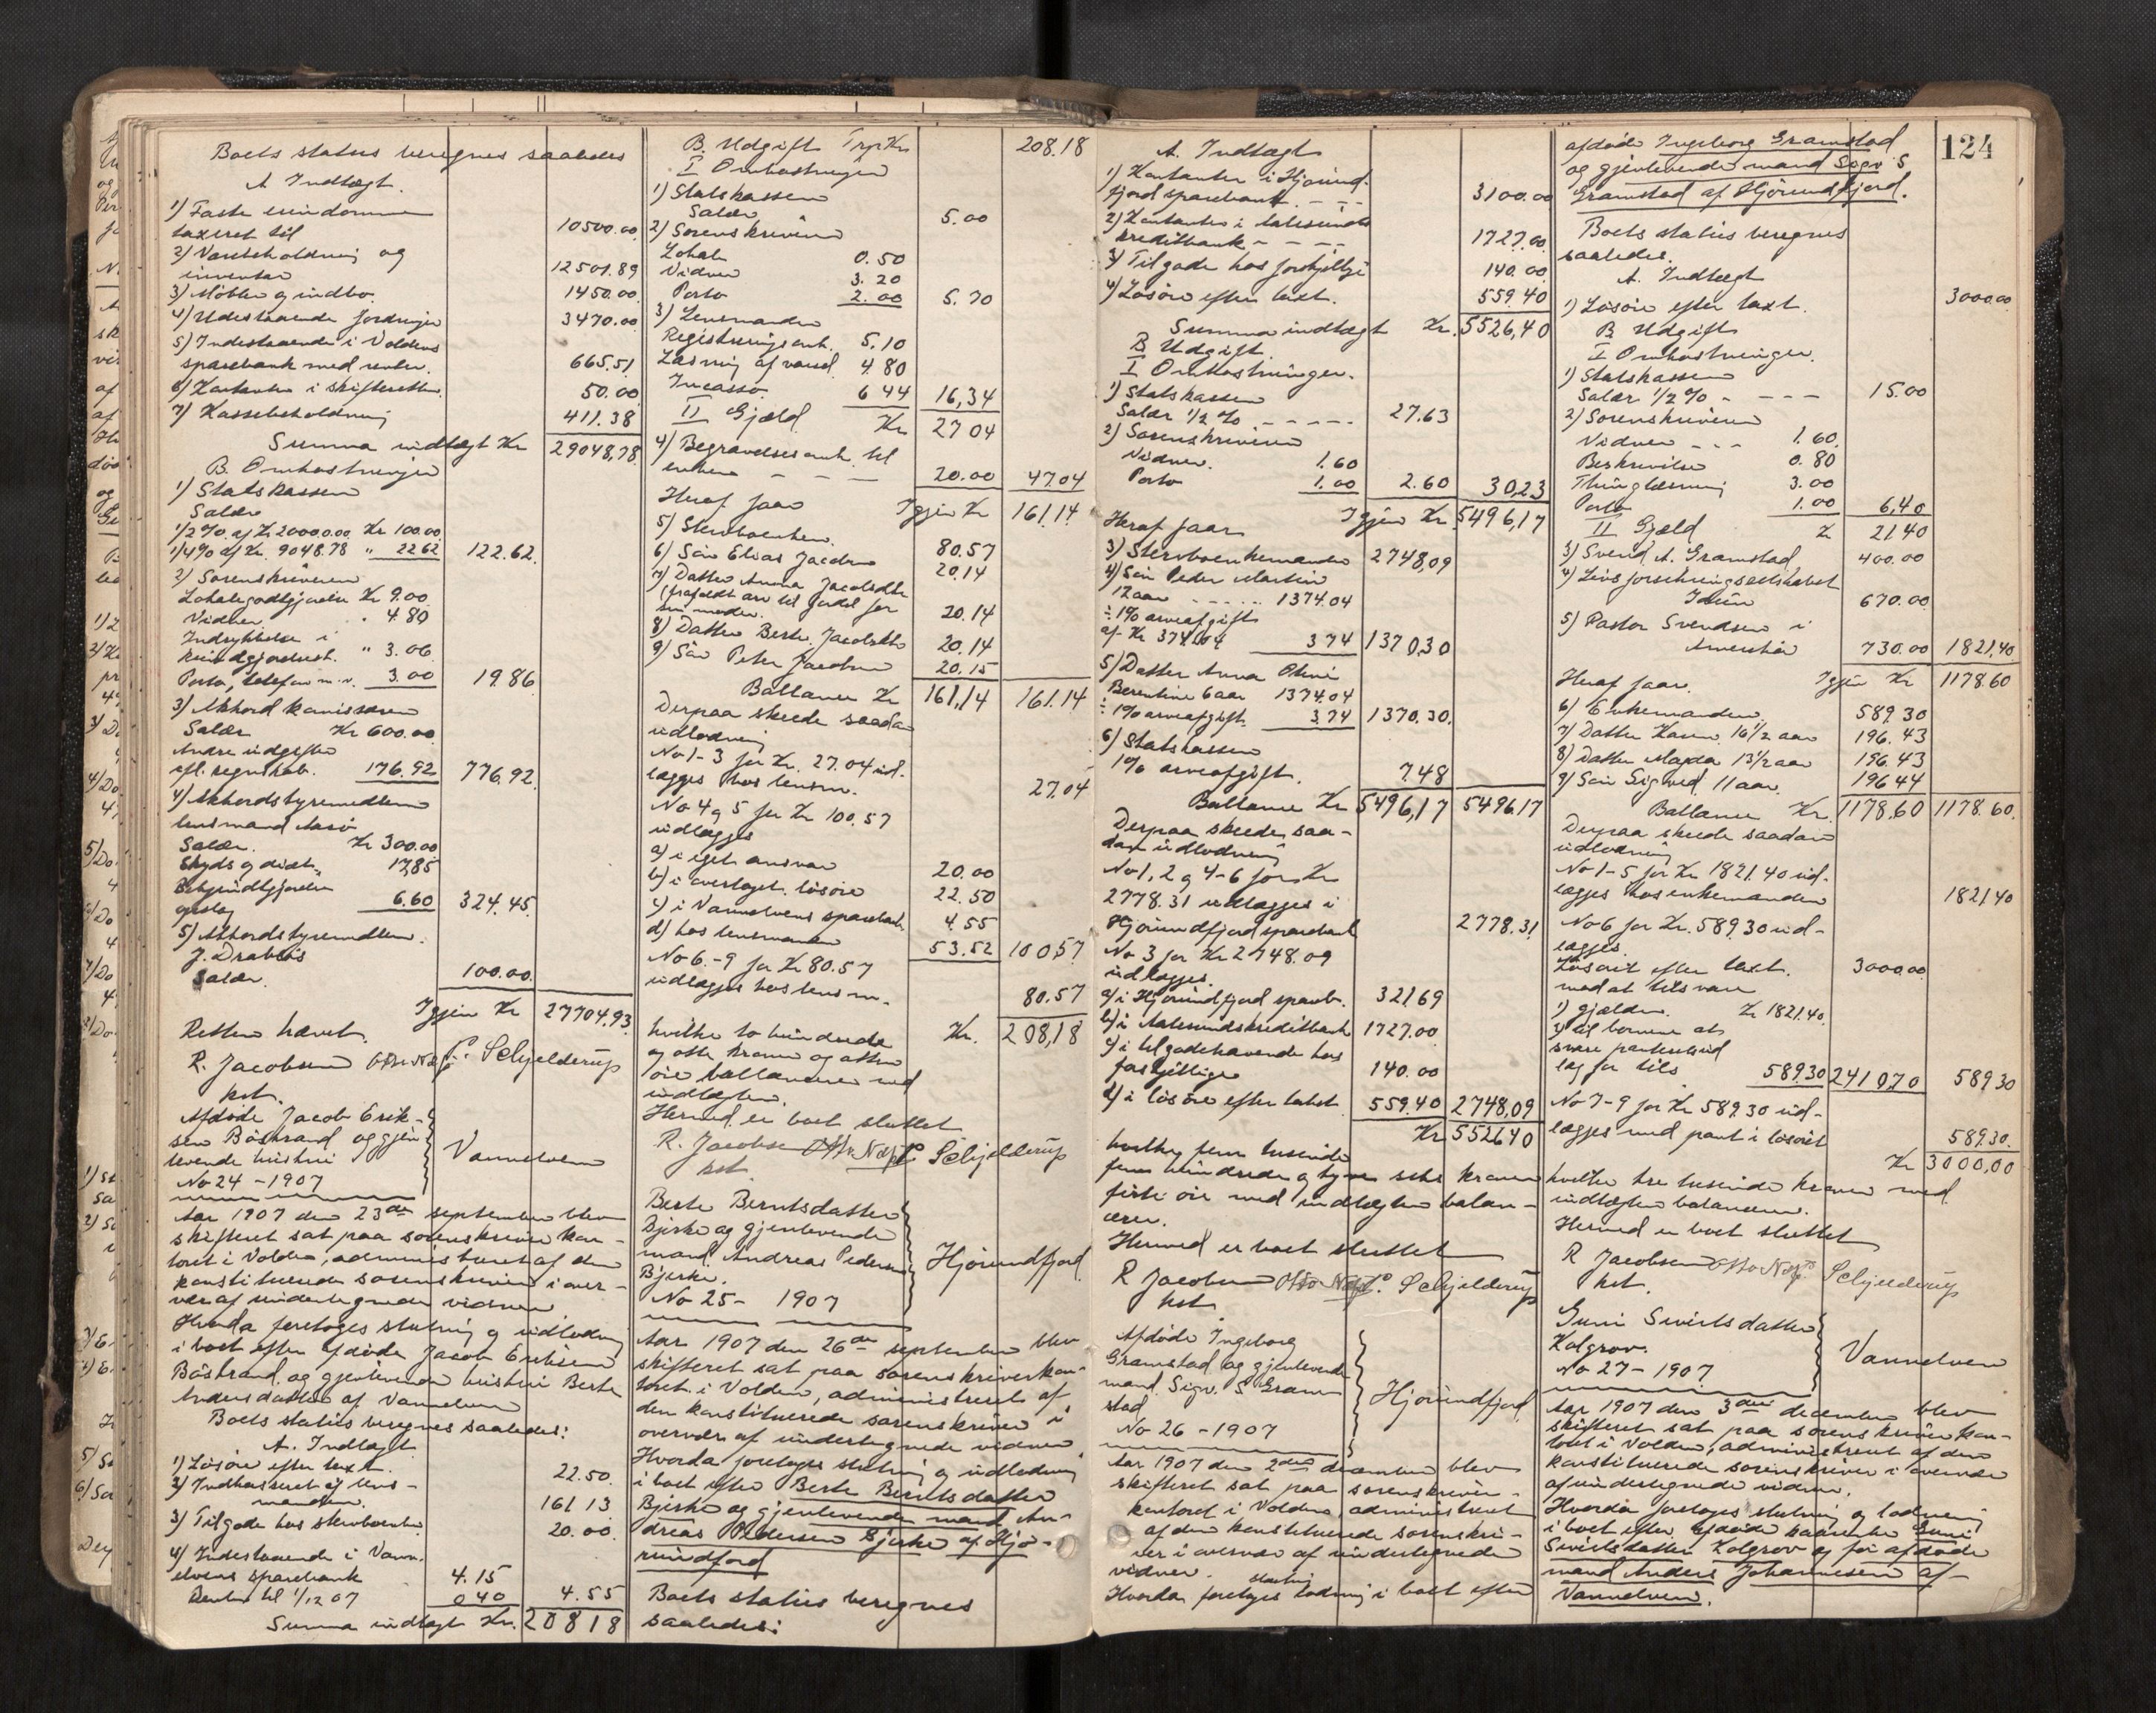 Boets status beregnes saaledes
A Indtægt.
1) Faste eiendomme
taxeret til 10500.00
2) Varebeholdning og
inventar 12501.89
3) Møbler og indbo. 1450.00
4) Udestaaende fordringer 3470.00
5) Indestaaende i Voldens
sparebank med renter. 665.51
6) Kontanter i skifteretten. 50.00
7) Kassebeholdning 411.38
Summa indtægt Kr 29048,78
B. Omkostninger
1) Statskassen
Salær
1/2 % af Kr 20000.00 Kr 100.00
1/4 % af Kr. 9048.78 " 22.62 122.62
2) Sorenskriveren
Lokalegodtgjørelse Kr 9.00
Vidner. 4.80
Indrykkelse i
kundgjørelsest. " 3.06
Porto, telefon m.v. 3.00 19.86
3) Akkordkommissæren
Salær Kr 600.00
Andre udgifter
efl. regnskab. 176.92 776.92
4) Akkordstyremedlem
lensmand Aasø
Salær. Kr 300.00
Skyds og diæt. 17,85
6.60 324.45
5) Akkordstyremedlem.
J. Drabløs
Salær. 100.00
Igjen Kr 27704.93
Retten hævet.
R. Jacobsen Otto Nap P. Schjelderup
kst.
Afdøde Jacob Erik-
sen Båstrand og gjen
levende hustru
No 24 - 1907
Vannelven
Aar 1907 den 23de september blev
skifteret sat paa sorenskriver kon-
toret i Volden, administreret af den
konstituerede sorenskriver i over-
vær af undertegnede vidner
Hvorda foretoges slutning og udlodning
i boet efter afdøde Jacob Eriksen
Båstrand og gjenlevende hustru Berte
Andersdatter af Vannelven
Boets status beregnes saaledes:
A. Indtægt
1) Løsøre efter taxt. 22.50.
2) Indkasseret af lens-
manden. 161 13
3) Tilgode hos stervboenken 20.00.
4) Indestaaende i Vann-
elvens sparebank 4.15
Renter til 1/12 07 0 40 4.55
Summa indtægt Kr. 208 18
B. Udgift Trp Kr 208.18
I Omkostninger
1) Statskassen
Salær 5.00
2) Sorenskriveren
Lokale 0.50
Vidner 3.20
Porto 2.00 5.70
3) Lensmanden
Registreringsomk. 5.10
Læsning af varsel 4.80
Incasso 6 44 16,34
II Gjæld. Kr 27 04
4) Begravelsesomk. til
enken - - - 20.00 47.04
Heraf faar Igjen Kr 161.14
5) Stervboenken. 80.57
6) Søn Elias Jacobsen 20.14
7) Datter Anna Jacobsdtr
(frafaldt arv til fordel for
sin moder. 20.14
8) Datter Berte Jacobsdtr 20.14
9) Søn Peter Jacobsen 20.15
Ballance Kr 161,14 161.14
Derpaa skede saadan
udlodning
No 1-3 for Kr. 27.04 ud-
lægges hos lensm. 27.04
No 4 og 5 for Kr 100.57
udlægges
a) i eget ansvar 20.00
b) i overtaget løsøre 22.50
c) i Vannelvens sparebank 4.55
d) hos lensmanden 53.52 100,57
No 6.-9 for Kr 80.57
udlægges hos lensm. 80.57
Kr. 208,18
hvilke to hundrede
og otte kroner og atten
øre ballancerer med
indtægten.
Hermed er boet sluttet
R. Jacobsen Otto Nap P. Schjelderup
kst
Berte Berntsdatter
Bjerke og gjenlevende
mand Andreas Pedersen
Bjerke.
No 25 - 1907
Hjørundfjord
Aar 1907 den 26de september blev
skifteret sat paa sorenskriverkon-
toret i Volden, administreret af
den konstituerede sorenskriver i
overvær af undertegnede vidner.
Hvorda foretoges slutning og udlodning
i boet efter Berte Berntsdatter
Bjerke og gjenlevende mand An-
dreas Pedersen Bjerke af Hjø-
rundfjord
Boets status beregnes
saaledes:
A. Indtægt
1) Kontanter i Hjørund-
fjord sparebank. - - 3100.00
2) Kontanter i Aalesunds
kreditbank - - - - 1727.00
3) Tilgode hos forskjellige 140.00
4) Løsøre efter taxt. 559.40
Summa indtægt Kr. 5526,40
B. Udgift.
I Omkostninger.
1) Statskassen
Salær 1/2 % - - - - - 27.63
2) Sorenskriveren
Vidner. 1.60
Porto 1.00 2.60 30,23
Heraf faar Igjen Kr. 5496,17
3) Stervboenkemanden 2748,09
4) Søn Peder Martin
12 aar - - - - 1374.04
÷ 1% arveafgift
af Kr 374.04 3 74 1370,30
5) Datter Anna Oline
Berentine 6 aar 1374.04
÷ 1% arveafgift. 3.74 1370.30.
6) Statskassen
1% arveafgift. 7 48
Ballance Kr 5496,17 5496.17
Derpaa skede saa-
dan udlodning
No 1, 2 og 4-6 for Kr
2778.31 udlægges i
Hjørundfjord sparebank 2778.31
No 3 for Kr 2748.09
udlægges.
a) i Hjørundfjord spareb. 321 69
b) i Aalesunds kreditbank 1727.00
c) i tilgodehavende hos
forskjellige 140.00
d) i løsøre efter takst. 559.40 2748,09
Kr 5526 40
hvilke fem tusinde
fem hundrede og tyve seks kroner
førti øre med indtægten balan-
cerer.
Hermed er boet sluttet
R Jacobsen Otto Nap P. Schjelderup
kst.
Afdøde Ingeborg
Gramstad og gjenlevende
mand Sigv. S Gram-
stad
No 26 - 1907
Hjørundfjord
Aar 1907 den 2den december blev
skifteret sat paa sorenskriver-
kontoret i Volden, administreret
af den konstituerede sorenskri-
ver i overvær af undertegnede
vidner.
Hvorda foretoges slutning lodning i boet efter
124
afdøde Ingeborg Gramstad
og gjenlevende mand Sigv. S
Gramstad af Hjørundfjord.
Boets status beregnes
saaledes.
A. Indtægt
1) Løsøre efter taxt. 3000.00
B Udgift
I Omkostninger.
1) Statskassen
Salær 1/2 % - - - - 15.00
2) Sorenskriveren
Vidner - - - 1.60.
Beskrivelse 0.80
Thinglæsning 3.00
Porto 1.00 6,40
II Gjæld Kr 21.40
3) Svend A. Gramstad 400.00
4) Livsforsikringsselskabet
Idun 670.00
5) Pastor Svendsen i
Amerika 730.00 1821,40
Heraf faar. Igjen Kr 1178.60
6) Enkemanden 589.30
7) Datter Karen 16 1/2 aar 196.43
8) Datter Magda 13 1/2 aar 196.43
9) Søn Sigved 11 aar. 196 44
Ballance Kr. 1178,60 1178.60.
Derpaa skede saadan
udlodning
No 1-5 for Kr 1821.40 ud-
lægges hos enkemanden 1821.40
No 6 for Kr. 589.30 ud-
lægges.
Løsøret efter taxt. 3000.00
mod at tilsvare
1) gjælden. Kr 1821.40.
2) til børnene at
svare panteudlæg
for tils 589.30 2410,70 589.30
No 7-9 for Kr 589.30 ud-
lægges med pant i løsøret 589.30.
Kr 3000,00
hvilke tre tusinde kroner med
indtægten balancerer.
Hermed er boet sluttet
R Jacobsen Otto Nap P. Schjelderup
kst.
Guri Sivertsdatter
Kolgrov.
No 27 - 1907
Vannelven
Aar 1907 den 3die december blev
skifteret sat paa sorenskriverkon-
toret i Volden, administreret af den
konstituerede sorenskriver i overvær
af undertegnede vidner.
Hvorda foretoges slutning og lodning
i boet efter afdøde kaarenke Guri
Sivertsdatter Kolgrov og før afdøde
mand Anders Johannesen af
Vannelven.